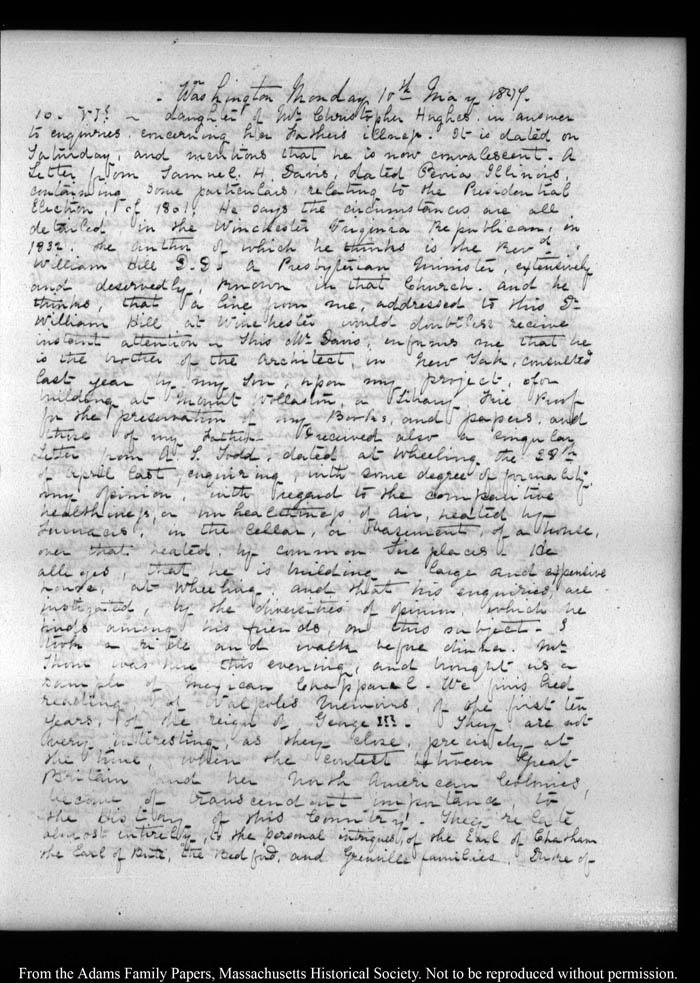 Washington Monday 10th May 1847.
10. VI. daughter of Mr Christopher Hughes in answer
to enquiries concerning her Fathers illness. It is dated on
Saturday, and mentions that he is now convalescent. A
Letter from Samuel H. Davis, dated Peoria Illinois,
containing some particulars relating to the Presidential
Election of 1801. He says the circumstances are all
detailed in the Winchester Virginia Republican, in
1832. the author of which he thinks is the Revd
William Hill D.D. a Presbyterian Minister, extensively
and deservedly, known in that Church. and he
thinks, that a line from me, addressed to this Dr
William Hill at Winchester would doubtless receive
instant attention This Mr Davis, informs me that he
is the brother of the Architect, in New York, consulted
last year by my Son, upon my project, of
building at Mount Wollaston, a Library Fire Proof
for the preservation of my Books, and papers, and
those of my Father. I received also a singular
Letter from A. S. Todd, dated at Wheeling the 28th
of April last, enquiring, with some degree of formality,
my opinion, with regard to the comparative
healthiness, or unhealthiness of air, heated by
furnaces, in the cellar, or basement, of a house,
over that heated, by common Fire places He
alleges, that he is building a large and expensive
house, at Wheeling, and that his enquiries, are
instigated, by the diversities of opinion which he
finds among his friends, on this subject. I
took a ride and walk before dinner. Mr
was here this evening, and brought us a
sample of Mexican Chapparel. We finished
reading of Walpoles Memoirs, of the first ten
years, of the reign of George III. They are not
very interesting, as they close, precisely at
the time, when the contest between Great
Britain and her North American Colonies,
become of transcendent importance, to
the History of this Country. They relate
almost entirely, to the personal intrigues, of the Earl of Chatham
the Earl of Bute, the Bedford, and Grenville families, Duke of
From the Adams Family Papers, Massachusetts Historical Society. Not to be reproduced without permission.